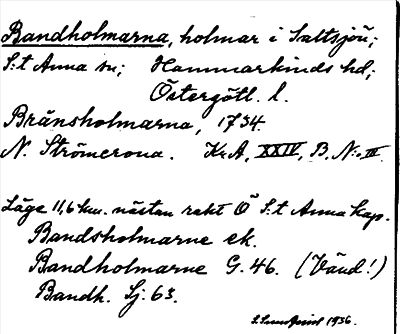 Bandholmarna, holmar i Saltsjön;
S:t Anna sn; Hammarkinds hd;
Östergötl. l.
Bränsholmarna, 1734.
N. Strömcrona. K.A, XXIV, B, N:o III.
Läge 11,6 km. nästan rakt Ö S:t Anna kap.
Bandsholmarne ek.
Bandholmarne G. 46. (Vänd!)
Bandh. Sj: 63.
1936.